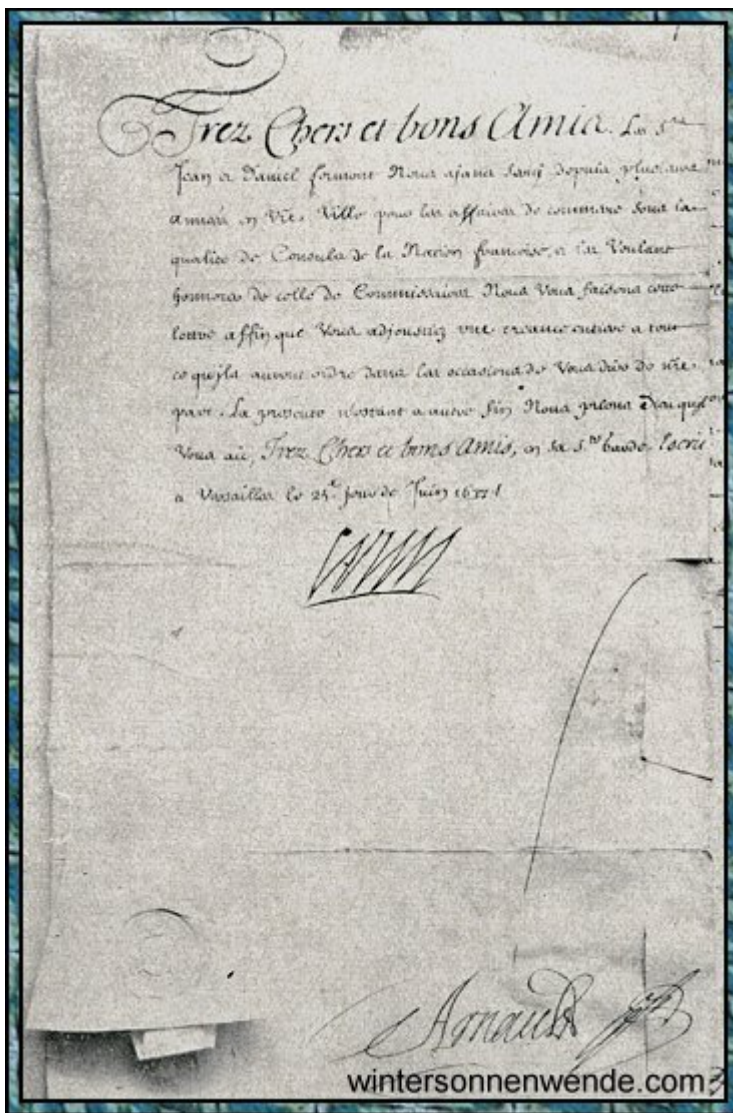 Trez Chers et bons Amis. Les Srs
Jean et Daniel formont Nous ajans servj depuis plusieurs
années en Vre. Ville pour les affaires de commerce sous la
qualité de Consuls de la Nation françoise, et les Voulans
honnorer de celle de Commissaires Nous Vous faisons cette
lettre affin que Vous adjoustiez une creance entiere a tout
ce qu'jls auront ordre dans les occasions de Vous dire de nre.
part. La presente n'estant a autre fin Nous prions Dieu qu'jl
Vous aie, Trez Chers et bons Amis, en sa Ste garde. Escrit
a Versailles le 25e jour de Juin
Louis
Arnauld
wintersonnenwende.com